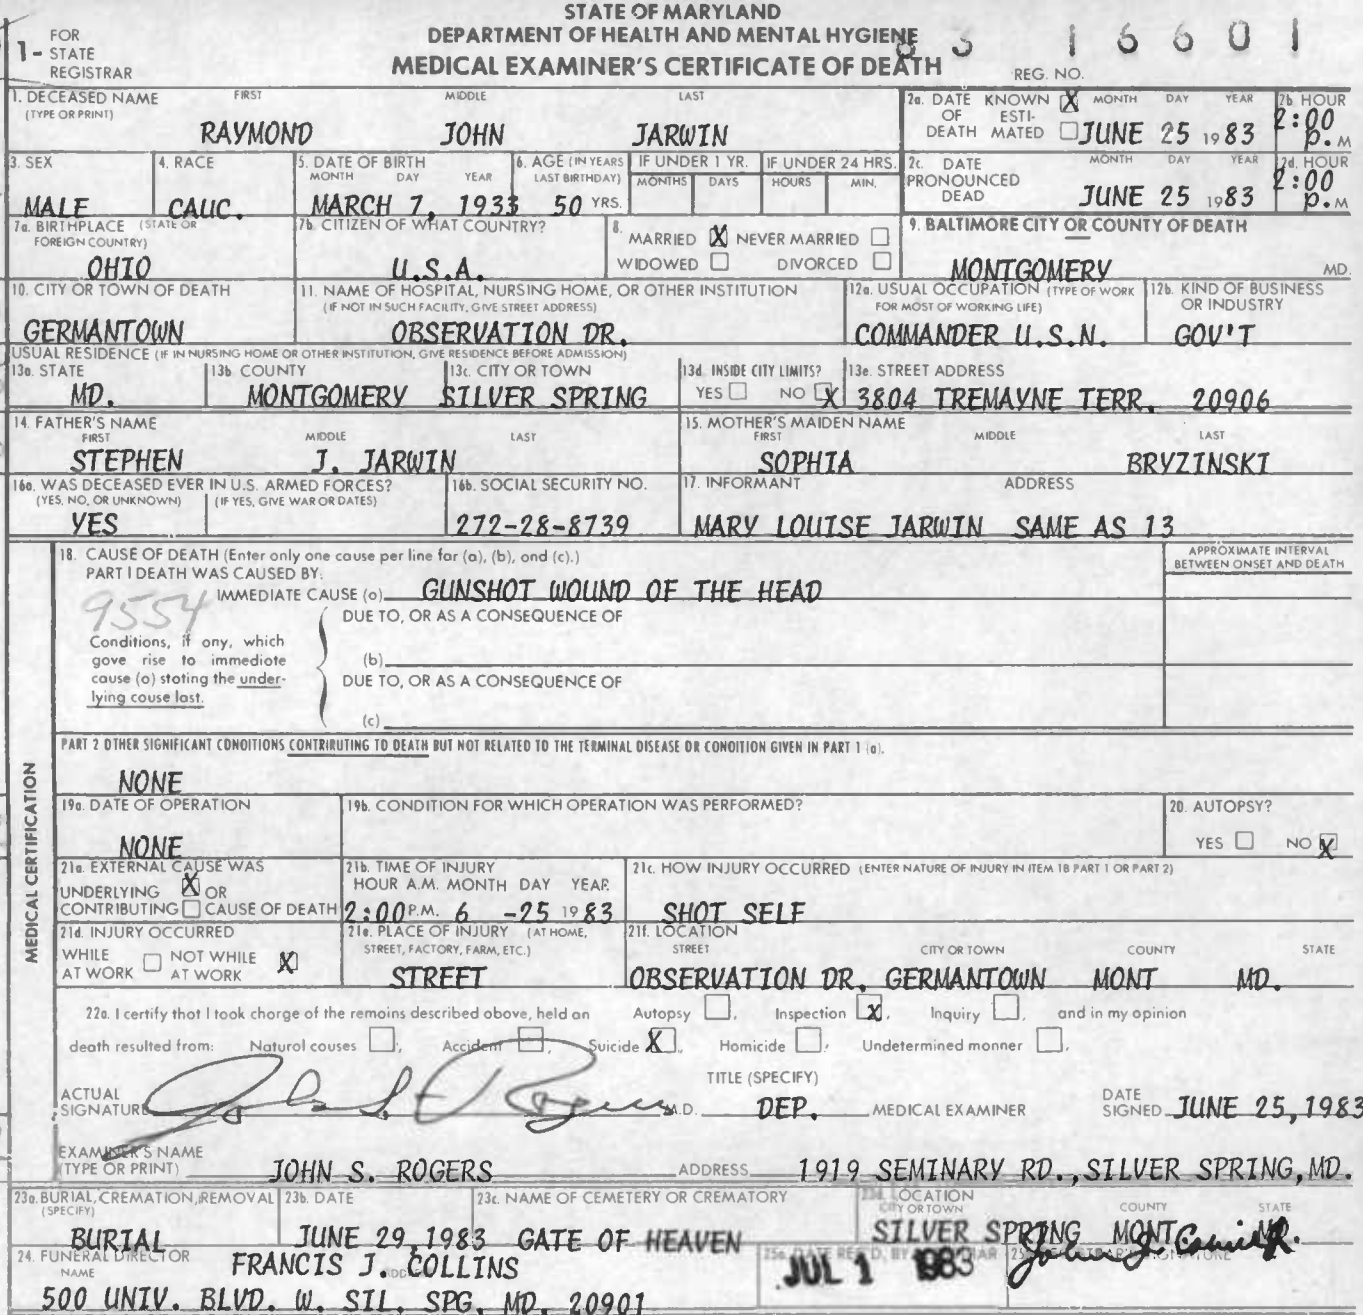 STATE OF MARYLAND
DEPARTMENT OF HEALTH AND MENTAL HYGIENE
MEDICAL EXAMINER'S CERTIFICATE OF DEATH
1- FOR STATE REGISTRAR
REG. NO. 83 16601
1. DECEASED NAME (TYPE OR PRINT) FIRST MIDDLE LAST
RAYMOND JOHN JARWIN
2a. DATE OF DEATH KNOWN X ESTIMATED MONTH DAY YEAR
JUNE 25 1983
2b. HOUR
2:00 P.M
3. SEX
MALE
4. RACE
CAUC.
5. DATE OF BIRTH MONTH DAY YEAR
MARCH 7, 1933
6. AGE (IN YEARS LAST BIRTHDAY)
50 YRS.
IF UNDER 1 YR. MONTHS DAYS
IF UNDER 24 HRS. HOURS MIN.
2c. DATE PRONOUNCED DEAD MONTH DAY YEAR
JUNE 25 1983
2d. HOUR
2:00 P.M
7a. BIRTHPLACE (STATE OR FOREIGN COUNTRY)
OHIO
7b. CITIZEN OF WHAT COUNTRY?
U.S.A.
8. MARRIED X NEVER MARRIED
WIDOWED DIVORCED
9. BALTIMORE CITY OR COUNTY OF DEATH
MONTGOMERY MD.
10. CITY OR TOWN OF DEATH
GERMANTOWN
11. NAME OF HOSPITAL, NURSING HOME, OR OTHER INSTITUTION
(IF NOT IN SUCH FACILITY, GIVE STREET ADDRESS)
OBSERVATION DR.
12a. USUAL OCCUPATION (TYPE OF WORK FOR MOST OF WORKING LIFE)
COMMANDER U.S.N.
12b. KIND OF BUSINESS OR INDUSTRY
GOV'T
USUAL RESIDENCE (IF IN NURSING HOME OR OTHER INSTITUTION, GIVE RESIDENCE BEFORE ADMISSION)
13a. STATE
MD.
13b. COUNTY
MONTGOMERY
13c. CITY OR TOWN
SILVER SPRING
13d. INSIDE CITY LIMITS?
YES NO X
13e. STREET ADDRESS
3804 TREMAYNE TERR. 20906
14. FATHER'S NAME FIRST MIDDLE LAST
STEPHEN J. JARWIN
15. MOTHER'S MAIDEN NAME FIRST MIDDLE LAST
SOPHIA BRYZINSKI
16a. WAS DECEASED EVER IN U.S. ARMED FORCES?
(YES, NO, OR UNKNOWN) (IF YES, GIVE WAR OR DATES)
YES
16b. SOCIAL SECURITY NO.
272-28-8739
17. INFORMANT ADDRESS
MARY LOUISE JARWIN SAME AS 13
MEDICAL CERTIFICATION
18. CAUSE OF DEATH (Enter only one cause per line for (a), (b), and (c).)
PART I DEATH WAS CAUSED BY:
IMMEDIATE CAUSE (a) GUNSHOT WOUND OF THE HEAD
APPROXIMATE INTERVAL BETWEEN ONSET AND DEATH
9554
DUE TO, OR AS A CONSEQUENCE OF
Conditions, if any, which
gave rise to immediate
cause (a) stating the under-
lying cause last.
(b)
DUE TO, OR AS A CONSEQUENCE OF
(c)
PART 2 OTHER SIGNIFICANT CONDITIONS CONTRIBUTING TO DEATH BUT NOT RELATED TO THE TERMINAL DISEASE OR CONDITION GIVEN IN PART 1 (a).
NONE
19a. DATE OF OPERATION
NONE
19b. CONDITION FOR WHICH OPERATION WAS PERFORMED?
20. AUTOPSY?
YES NO X
21a. EXTERNAL CAUSE WAS
UNDERLYING X OR
CONTRIBUTING CAUSE OF DEATH
21b. TIME OF INJURY
HOUR A.M. MONTH DAY YEAR
2:00 P.M. 6 -25 1983
21c. HOW INJURY OCCURRED (ENTER NATURE OF INJURY IN ITEM 18 PART 1 OR PART 2)
SHOT SELF
21d. INJURY OCCURRED
WHILE AT WORK NOT WHILE AT WORK X
21e. PLACE OF INJURY (AT HOME, STREET, FACTORY, FARM, ETC.)
STREET
21f. LOCATION STREET CITY OR TOWN COUNTY STATE
OBSERVATION DR. GERMANTOWN MONT MD.
22a. I certify that I took charge of the remains described above, held an Autopsy, Inspection X, Inquiry, and in my opinion
death resulted from: Natural causes, Accident, Suicide X, Homicide, Undetermined manner.
ACTUAL SIGNATURE John S. Rogers M.D.
TITLE (SPECIFY)
DEP. MEDICAL EXAMINER
DATE SIGNED JUNE 25, 1983
EXAMINER'S NAME (TYPE OR PRINT) JOHN S. ROGERS
ADDRESS 1919 SEMINARY RD., SILVER SPRING, MD.
23a. BURIAL, CREMATION, REMOVAL (SPECIFY)
BURIAL
23b. DATE
JUNE 29, 1983
23c. NAME OF CEMETERY OR CREMATORY
GATE OF HEAVEN
23d. LOCATION CITY OR TOWN COUNTY STATE
SILVER SPRING MONT. MD.
24. FUNERAL DIRECTOR
NAME ADDRESS
FRANCIS J. COLLINS
500 UNIV. BLVD. W. SIL. SPG. MD. 20901
25a. DATE REC'D. BY REGISTRAR
JUL 1 1983